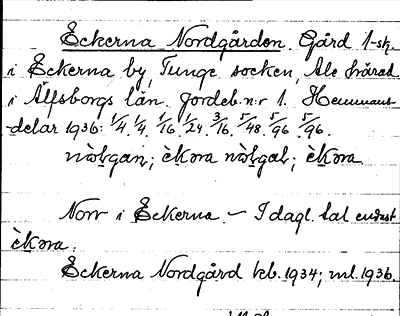 Eckerna Nordgården. Gård 1-sk.
i Eckerna by, Tunge socken, Ale härad
i Älfsborgs län. Jordeb. n:r 1. Hemmans-
delar 1936: 1/4. 1/4. 1/16. 1/24. 3/16. 5/48. 5/96. 5/96.
nòlgan; èkora nòlgal; èkora
Norr i Eckerna. - I dagl. tal endast
èkora.
Eckerna Nordgård kb. 1934; ml. 1936.